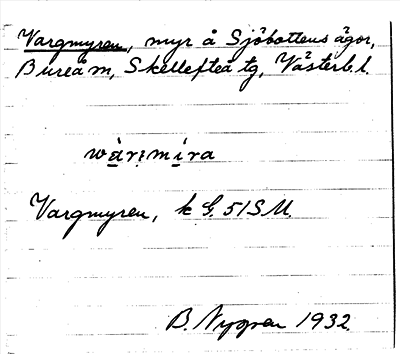 Vargmyren, myr å Sjöbottens ägor,
Bureå m, Skellefteå tg, Västerb. l.
wàrımíra
Vargmyren, k G. 51 S M.
B. Nygren 1932